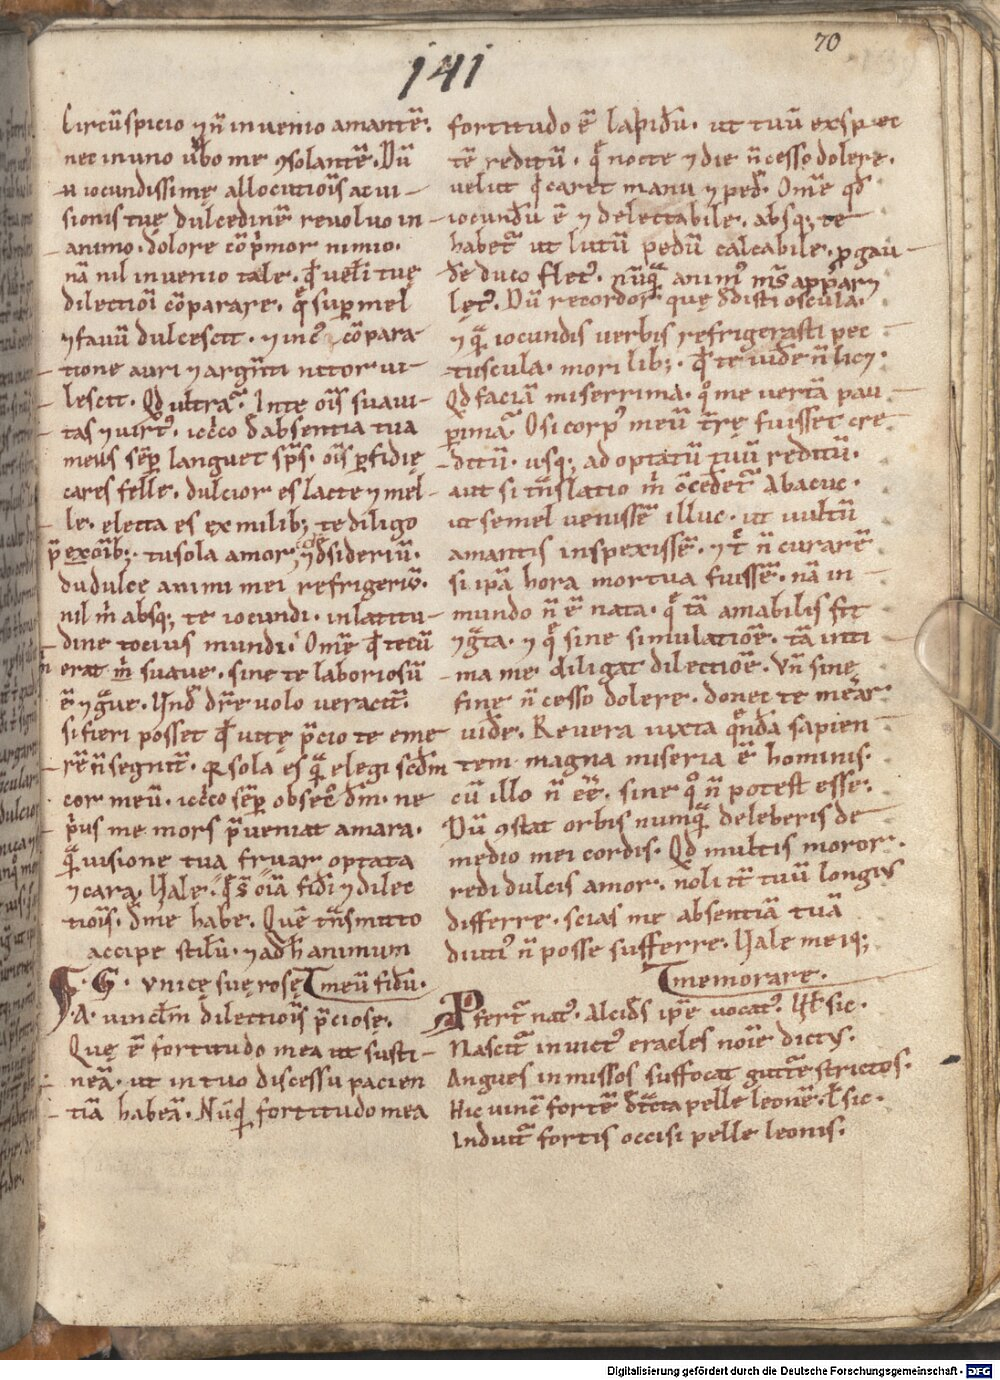 141
70
Circū spicio ⁊ n̄ in uenio amantē.
nec in uno ūbo me ꝯsolantē. Dū
u iocundissimę allocutiois̄ ac ui-
sionis tuę dulcedinē reuoluo in
animo. dolore cōp̄mor nimio.
nā nil in uenio tale. qd̄ uel̄i tuę
dilectioī cōparare. q̄ suꝑ mel
⁊ fauū dulcescit. ⁊ in cͥ cōpara-
tione auri ⁊ argn̄ti nitor ui-
lescit. Qd̄ ultra. In te ois̄ suaui-
tas ⁊ uirt᷒. iccͦco d̄ absentia tua
meus semꝑ languet sp̄s. ois̄ ꝑfidię
cares felle. dulcior es lacte ⁊ mel-
le. electa es ex milib; te diligo
p̄ ex oīb;. tu sola amor ⁊ d̄sideriū.
du dulce animi mei refrigeriū.
nil m̄ absq; te iocundi. in latitu-
dine tocius mundi. Om̄e qd̄ tecū
erat m̄ suaue. sine te laboriosū
ē ⁊ gͣue. Vnd̄ dr̄e uolo ueracit̄.
si fieri posset qd̄ uitę p̄cio te eme
rē n̄ segnit̄. quia sola es quā elegi scd̄m
cor meū. iccͦco semꝑ obsec̄ dm̄. ne
pͥus me mors p̄ueniat amara.
quā uisione tua fruar optata
⁊ cara. Uale. qͥs oīa fid̄i ⁊ dilec
tiois̄. d̄ me habe. Quē tn̄smitto
accipe stilū. ⁊ adh̄ animum
T meū fidū.
S. G. vnicę suę rosę
A. uincl̄m dilectiois̄ p̄ciose.
Quę ē fortitudo mea ut susti-
neā. ut in tuo discessu pacien
tiā habeā. Nūqͥd fortitudo mea
fortitudo ē lapidū. ut tuū exspec
tē reditū. q̄ nocte ⁊ die n̄ cesso dolere.
uelut qͥ caret manu ⁊ ped̄. Om̄e qd̄
iocundū ē ⁊ delectabile. absq; te
habet᷑ ut lutū pedū calcabile. ꝓ gau
d̄e duco flet᷒. nūquā anim᷒ ms̄ apparꝫ
lęt᷒. Dū recordor quę d̄disti oscula.
⁊ quā iocundis uerbis refrigerasti pec
tuscula. mori lib;. qd̄ te uid̄e n̄ licꝫ.
Qd̄ faciā miserrima. qͦ me uertā pau
ꝑrima. O si corp᷒ meū tr̄ę fuisset cre
ditū. usq; ad optatū tuū reditū.
aut si tn̄slatio m̄ ꝯcedet᷑ Abacuc.
ut semel uenissē illuc. ut uultū
amantis inspexissē. ⁊ tc̄ n̄ curarē
si ipā hora mortua fuissē. nā in
mundo n̄ ē nata. q̄ tā amabilis sit
⁊ gͣta. ⁊ q̄ sine simulatioē. tā inti
ma me diligat dilectioē. Vn̄ sine
fine n̄ cesso dolere. donec te meͣr
uid̄e. Reuera iuxta quend̄ā sapien
tem magna miseria ē hominis.
cū illo n̄ eē̄. sine qͦ n̄ potest esse.
Dū ꝯstat orbis numquā deleberis de
medio mei cordis. Qd̄ multis moror.
redi dulcis amor. noli it̄ tuū longiꝰ
differre. scias me absentiā tuā
diuti᷒ n̄ posse sufferre. Uale mei q;
T memorare.
Pfert᷑ nat᷒. Alcid̄s ip̄e uocat᷒. Ul̄ sic.
Nascit᷑ inuict᷒ eracles noīe dict᷒.
Angues inmissos suffocat gutt̄e strictos.
Hic uinc̄ fortē d̄tͣcta pelle leonē. Ul̄ sic.
Induit᷑ fortis occisi pelle leonis.
Digitalisierung gefördert durch die Deutsche Forschungsgemeinschaft - DFG